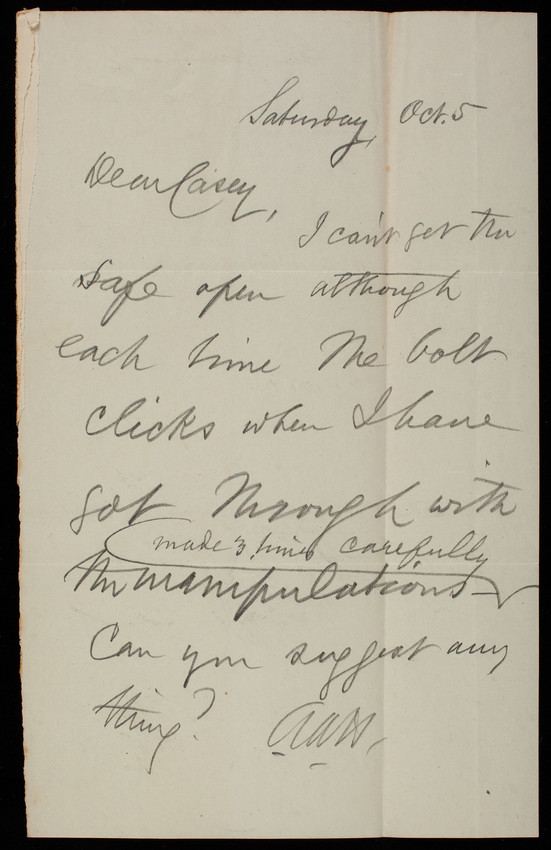 Saturday, Oct. 5
Dear Casey,
I can't get the
safe open although
each time the bolt
clicks when I have
got through with
made 3 times carefully
the manipulations
Can you suggest any
thing?